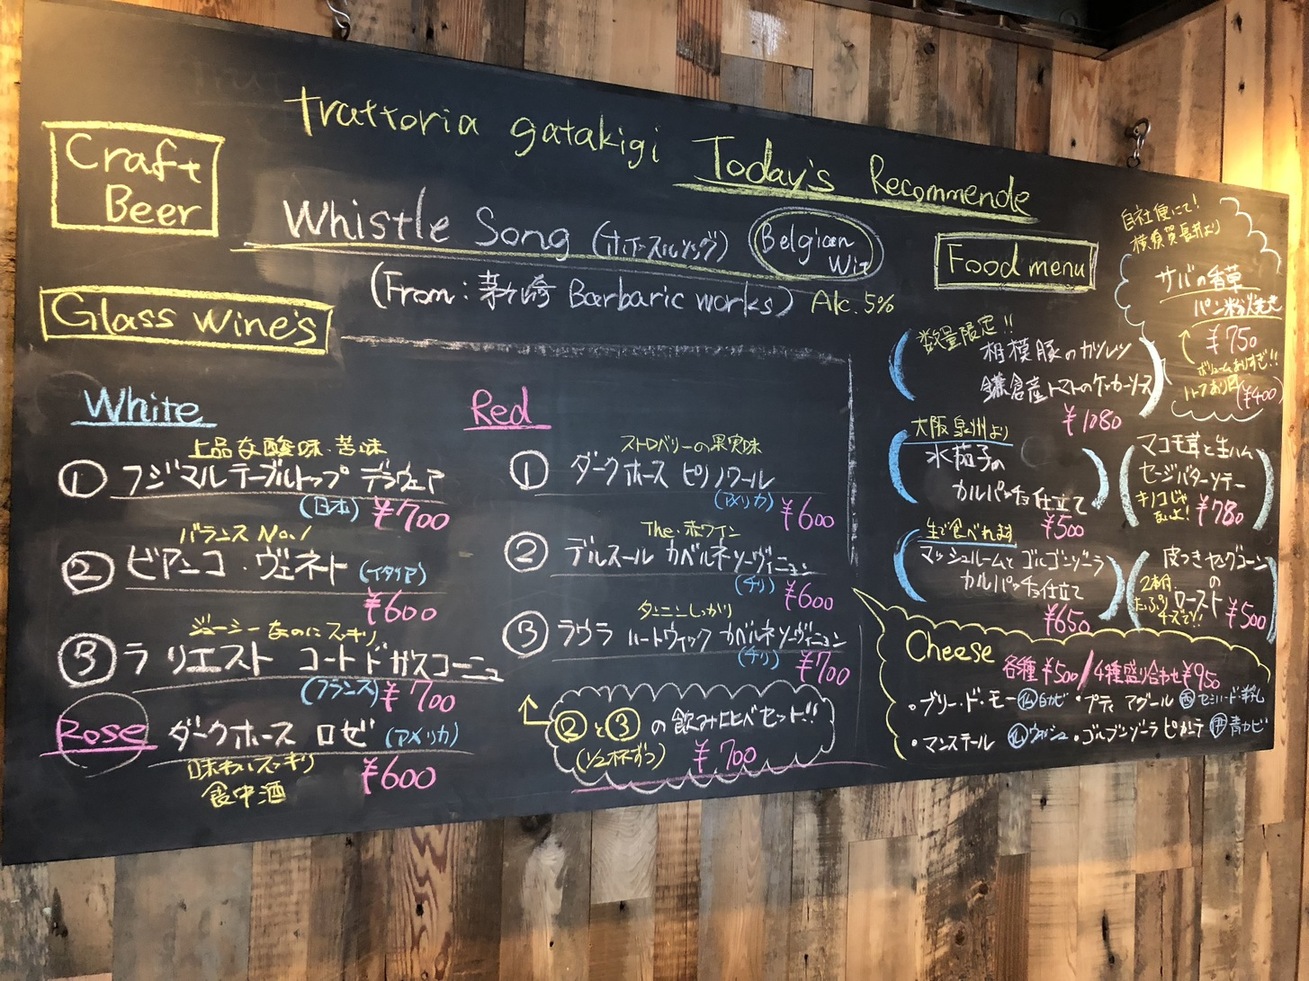 trattoria gatakigi Today's Recommende
Craft
Beer
Whistle Song (ホイッスルソング)
Belgian
Wit
(From: 茅ヶ崎 Barbaric works) Alc. 5%
Glass Wine's
White
上品な酸味、苦味
① フジマル テーブルトップ デラウェア
(日本) ¥700
バランス No.1
② ビアンコ・ヴェネト (イタリア)
¥600
ジューシーなのにスッキリ
③ ラ リエスト コート ド ガスコーニュ
(フランス) ¥700
Rose
ダークホース ロゼ (アメリカ)
スッキリ ¥600
食中酒
Red
ストロベリーの果実味
① ダークホース ピノノワール
(アメリカ) ¥600
The・赤ワイン
② デルスール カベルネソーヴィニョン
(チリ) ¥600
タンニンしっかり
③ ラウラ ハートヴィック カベルネソーヴィニョン
(チリ) ¥700
②と③の飲み比べセット!!
(1/2杯ずつ) ¥700
Food menu
自社便にて!
横須賀長井より
サバの香草
パン粉焼き
¥750
ボリュームありすぎ!!
ハーフあり〼 (¥400)
数量限定!!
相模豚のカツレツ
鎌倉産トマトのケッカソース
¥1080
大阪 泉州より
水茄子の
カルパッチョ仕立て
¥500
マコモ茸と生ハム
セージバターソテー
キノコじゃ
ないよ! ¥780
生で食べれます
マッシュルームとゴルゴンゾーラ
カルパッチョ仕立て
¥650
皮つきヤングコーン
の
ロースト
2本付
たっぷり
チーズで!! ¥500
Cheese
各種 ¥500/4種盛り合わせ ¥950
・ブリー・ド・モー 仏 白カビ ・プティ アグール 西 セミハード・羊乳
・マンステール 仏 ウォッシュ ・ゴルゴンゾーラ ピカンテ 伊 青カビ